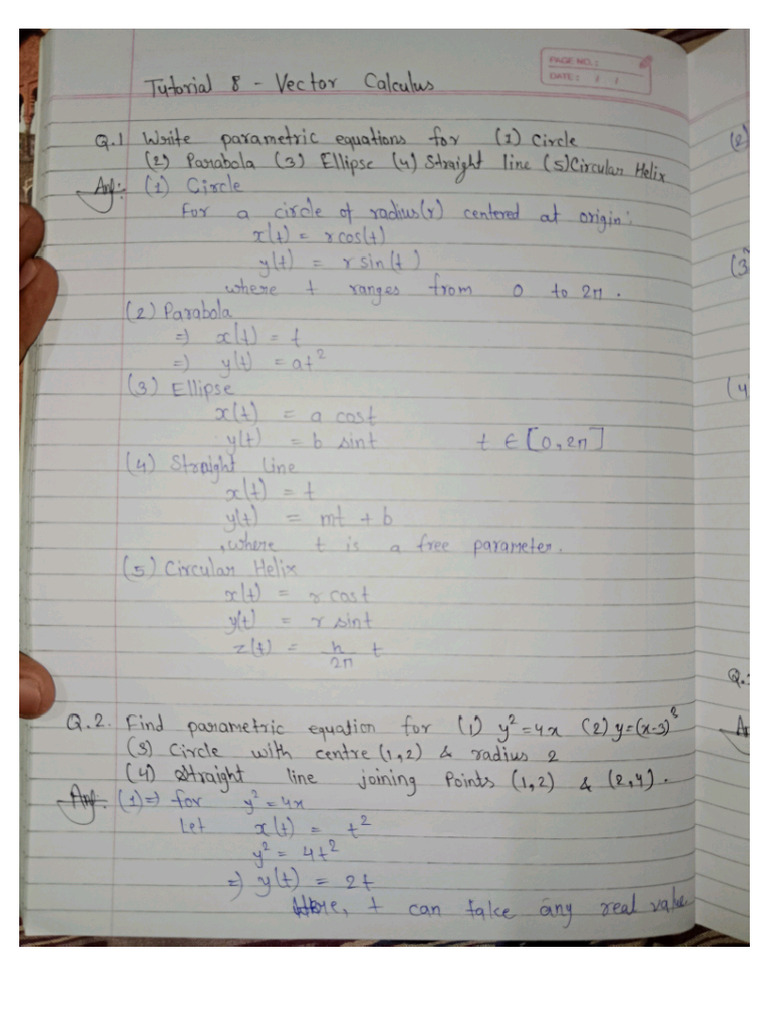 PAGE NO.:
DATE: / /
Tutorial 8 - Vector Calculus
Q.1 Write parametric equations for (1) Circle
(2) Parabola (3) Ellipse (4) Straight line (5) Circular Helix
Ans:- (1) Circle
For a circle of radius(r) centered at origin:
x(t) = r cos(t)
y(t) = r sin(t)
where t ranges from 0 to 2π.
(2) Parabola
⇒ x(t) = t
⇒ y(t) = at²
(3) Ellipse
x(t) = a cost
y(t) = b sint t ∈ [0, 2π]
(4) Straight Line
x(t) = t
y(t) = mt + b
, where t is a free parameter.
(5) Circular Helix
x(t) = r cost
y(t) = r sint
z(t) = h/2π t
Q.2. Find parametric equation for (1) y² = 4x (2) y=(x-3)³
(3) Circle with centre (1,2) & radius 2
(4) Straight line joining Points (1,2) & (2,4).
Ans:- (1) ⇒ for y² = 4x
Let x(t) = t²
y² = 4t²
⇒ y(t) = 2t
Here, t can take any real value
(2)
(3
(4
Q.